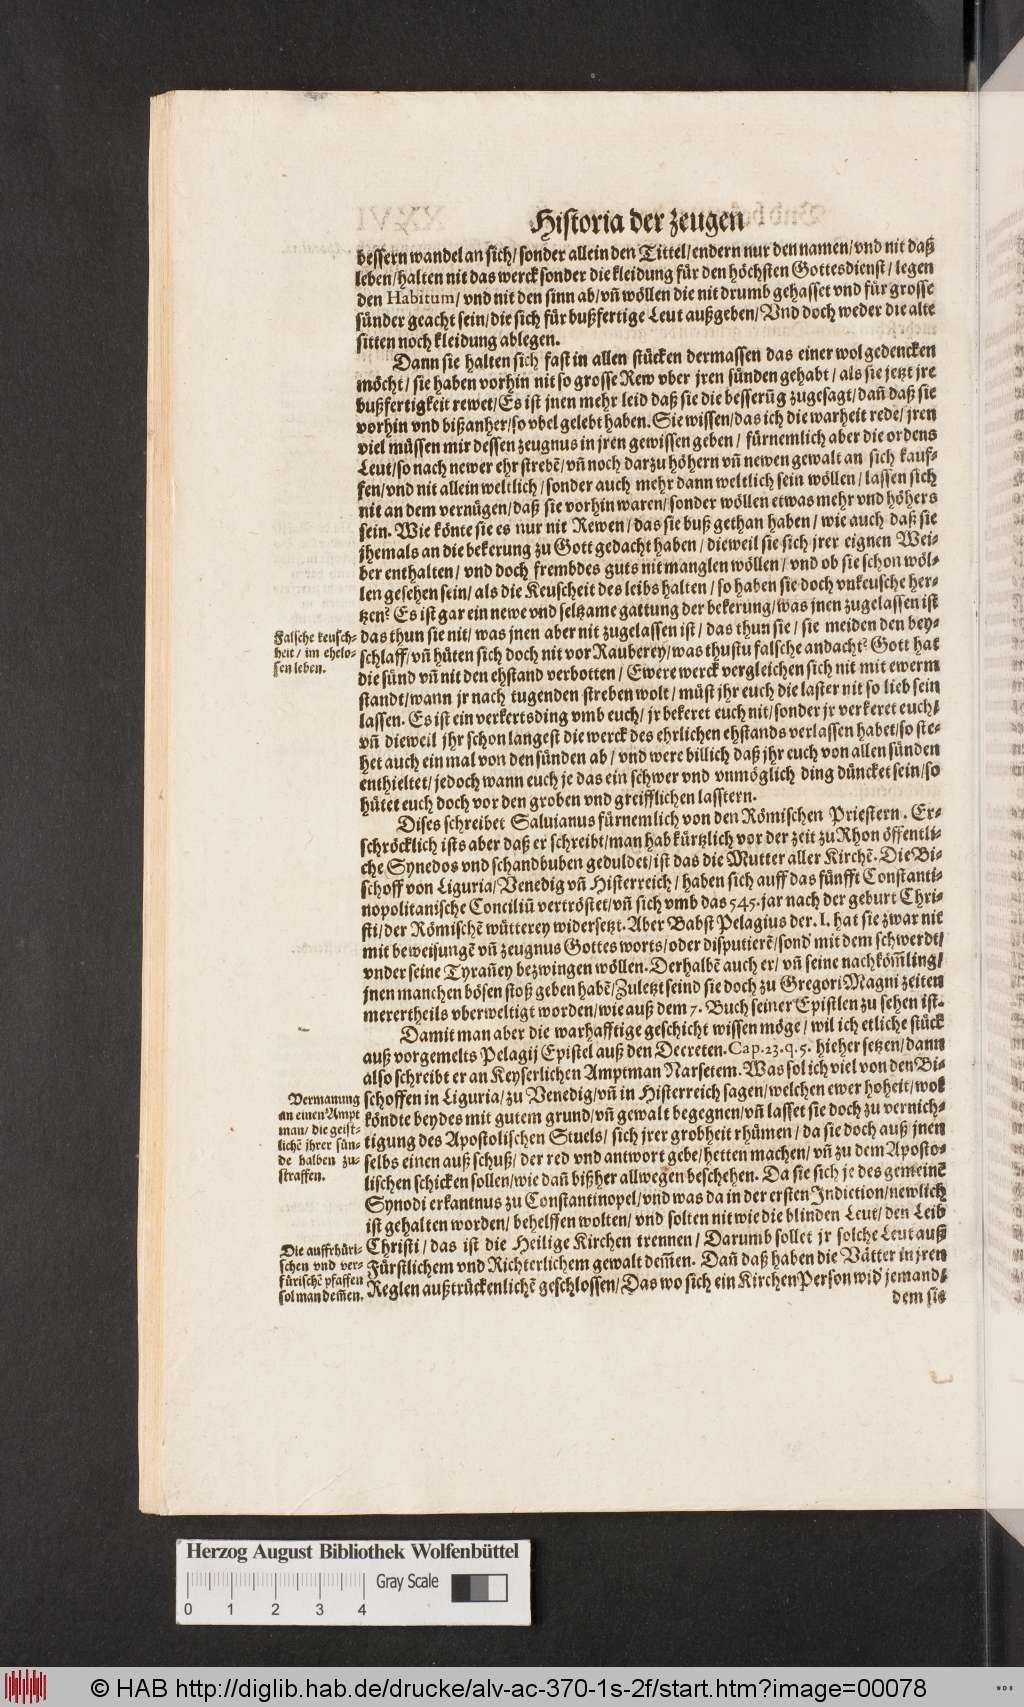 Historia der zeugen
bessern wandel an sich/ sonder allein den Tittel/ endern nur den namen/ vnd nit daß
leben/ halten nit das werck sonder die kleidung für den höchsten Gottesdienst/ legen
den Habitum/ vnd nit den sinn ab/ vñ wöllen die nit drumb gehasset vnd für grosse
sünder geacht sein/ die sich für bußfertige Leut außgeben/ Vnd doch weder die alte
sitten noch kleidung ablegen.
Dann sie halten sich fast in allen stücken dermassen das einer wol gedencken
möcht/ sie haben vorhin nit so grosse Rew vber jren sünden gehabt/ als sie jetzt jre
bußfertigkeit rewet/ Es ist jnen mehr leid daß sie die besserũg zugesagt/ dañ daß sie
vorhin vnd bißanher/ so vbel gelebt haben. Sie wissen/ das ich die warheit rede/ jren
viel müssen mir dessen zeugnus in jren gewissen geben/ fürnemlich aber die ordens
Leut/ so nach newer ehr strebẽ/ vñ noch darzu höhern vñ newen gewalt an sich kauf-
fen/ vnd nit allein weltlich/ sonder auch mehr dann weltlich sein wöllen/ lassen sich
nit an dem vernügen/ daß sie vorhin waren/ sonder wöllen etwas mehr vnd höhers
sein. Wie könte sie es nur nit Rewen/ das sie buß gethan haben/ wie auch daß sie
jhemals an die bekerung zu Gott gedacht haben/ dieweil sie sich jrer eignen Wei-
ber enthalten/ vnd doch frembdes guts nit manglen wöllen/ vnd ob sie schon wöl-
len gesehen sein/ als die Keuscheit des leibs halten/ so haben sie doch vnkeusche her-
tzen? Es ist gar ein newe vnd seltzame gattung der bekerung/ was jnen zugelassen ist
Falsche keusch-
heit/ im ehelo-
sen leben.
das thun sie nit/ was jnen aber nit zugelassen ist/ das thun sie/ sie meiden den bey-
schlaff/ vñ hüten sich doch nit vor Rauberey/ was thustu falsche andacht? Gott hat
die sünd vñ nit den ehstand verbotten/ Ewere werck vergleichen sich nit mit ewerm
standt/ wann jr nach tugenden streben wolt/ müst jhr euch die laster nit so lieb sein
lassen. Es ist ein verkertsding vmb euch/ jr bekeret euch nit/ sonder jr verkeret euch/
vñ dieweil jhr schon langest die werck des ehrlichen ehstands verlassen habet/ so ste-
het auch ein mal von den sünden ab/ vnd were billich daß jhr euch von allen sünden
enthieltet/ jedoch wann euch je das ein schwer vnd vnmöglich ding düncket sein/ so
hütet euch doch vor den groben vnd greifflichen lasstern.
Dises schreibet Saluianus fürnemlich von den Römischen Priestern. Er-
schröcklich ists aber daß er schreibt/ man hab kürtzlich vor der zeit zu Rhon öffentli-
che Synedos vnd schandbuben geduldet/ ist das die Mutter aller Kirchẽ. Die Bi-
schoff von Liguria/ Venedig vñ Histerreich/ haben sich auff das fünfft Constanti-
nopolitanische Conciliũ vertröstet/ vñ sich vmb das 545. jar nach der geburt Chri-
sti/ der Römischẽ wütterey widersetzt. Aber Babst Pelagius der. I. hat sie zwar nit
mit beweisungẽ vñ zeugnus Gottes worts/ oder disputierẽ/ sond' mit dem schwerdt/
vnder seine Tyrañey bezwingen wöllen. Derhalbẽ auch er/ vñ seine nachköm̃ling/
jnen manchen bösen stoß geben habẽ/ Zuletzt seind sie doch zu Gregori Magni zeiten
merertheils vberweltigt worden/ wie auß dem 7. Buch seiner Epistlen zu sehen ist.
Damit man aber die warhafftige geschicht wissen möge/ wil ich etliche stück
auß vorgemelts Pelagij Epistel auß den Decreten. Cap. 23. q. 5. hieher setzen/ dann
also schreibt er an Keyserlichen Amptman Narsetem. Was sol ich viel von den Bi-
Vermanung
an einen Ampt
man/ die geist-
lichẽ jhrer sün-
de halben zu-
straffen.
schoffen in Liguria/ zu Venedig/ vñ in Histerreich sagen/ welchen ewer hoheit/ wol
köndte beydes mit gutem grund/ vñ gewalt begegnen/ vñ lasset sie doch zu vernich-
tigung des Apostolischen Stuels/ sich jrer grobheit rhümen/ da sie doch auß jnen
selbs einen auß schuß/ der red vnd antwort gebe/ hetten machen/ vñ zu dem Aposto-
lischen schicken sollen/ wie dañ bißher allwegen beschehen. Da sie sich je des gemeinẽ
Synodi erkantnus zu Constantinopel/ vnd was da in der ersten Indiction/ newlich
ist gehalten worden/ behelffen wolten/ vnd solten nit wie die blinden Leut/ den Leib
Die auffrhüri-
schen vnd ver-
fürischẽ pfaffen
sol man dem̃en.
Christi/ das ist die Heilige Kirchen trennen/ Darumb sollet jr solche Leut auß
Fürstlichem vnd Richterlichem gewalt dem̃en. Dañ daß haben die Vätter in jren
Reglen außtrückenlichẽ geschlossen/ Das wo sich ein KirchenPerson wid' jemand/
dem sie
Herzog August Bibliothek Wolfenbüttel
Gray Scale
0 1 2 3 4
© HAB http://diglib.hab.de/drucke/alv-ac-370-1s-2f/start.htm?image=00078